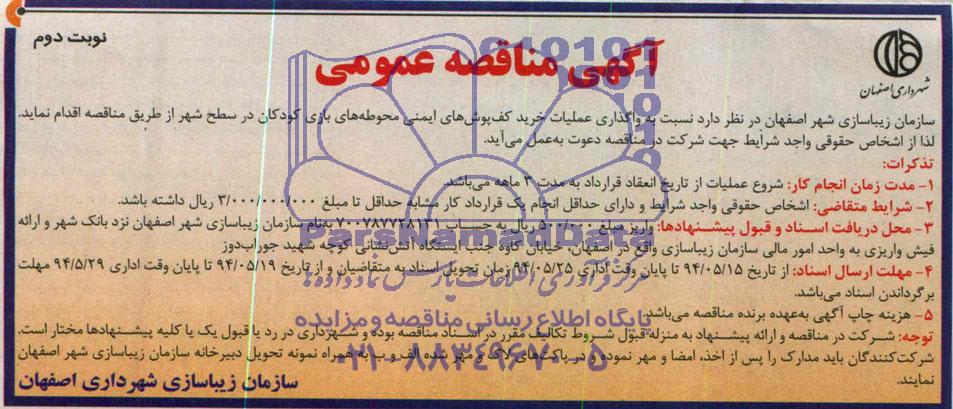 نوبت دوم
آگهی مناقصه عمومی
شهرداری اصفهان
سازمان زیباسازی شهر اصفهان در نظر دارد نسبت به واگذاری عملیات خرید کف‌پوش‌های ایمنی محوطه‌های بازی کودکان در سطح شهر از طریق مناقصه اقدام نماید.
لذا از اشخاص حقوقی واجد شرایط جهت شرکت در مناقصه دعوت به‌عمل می‌آید.
تذکرات:
۱- مدت زمان انجام کار: شروع عملیات از تاریخ انعقاد قرارداد به مدت ۳ ماهه می‌باشد.
۲- شرایط متقاضی: اشخاص حقوقی واجد شرایط و دارای حداقل انجام یک قرارداد کار مشابه حداقل تا مبلغ ۳/۰۰۰/۰۰۰/۰۰۰ ریال داشته باشد.
۳- محل دریافت اسناد و قبول پیشنهادها: واریز مبلغ ریال به حساب به‌نام سازمان زیباسازی شهر اصفهان نزد بانک شهر و ارائه
فیش واریزی به واحد امور مالی سازمان زیباسازی واقع در اصفهان، خیابان کاوه جنب ایستگاه آتش‌نشانی کوچه شهید جوراب‌دوز
۴- مهلت ارسال اسناد: از تاریخ ۹۴/۰۵/۱۵ تا پایان وقت اداری ۹۴/۰۵/۲۵ زمان تحویل اسناد به متقاضیان و از تاریخ ۹۴/۰۵/۱۹ تا پایان وقت اداری ۹۴/۵/۲۹ مهلت
برگرداندن اسناد می‌باشد.
۵- هزینه چاپ آگهی به‌عهده برنده مناقصه می‌باشد.
توجه: شرکت در مناقصه و ارائه پیشنهاد به منزله قبول شروط تکالیف مقرر در اسناد مناقصه بوده و شهرداری در رد یا قبول یک یا کلیه پیشنهادها مختار است.
شرکت‌کنندگان باید مدارک را پس از اخذ، امضا و مهر نموده و در پاکت‌های لاک و مهر شده الف و ب به همراه نمونه تحویل دبیرخانه سازمان زیباسازی شهر اصفهان
نمایند.
سازمان زیباسازی شهرداری اصفهان
ParsNamadData
مرکز فرآوری اطلاعات پارس نماد داده‌ها
پایگاه اطلاع رسانی مناقصه و مزایده
۰۲۱-۸۸۳۴۹۶۷۰-۵